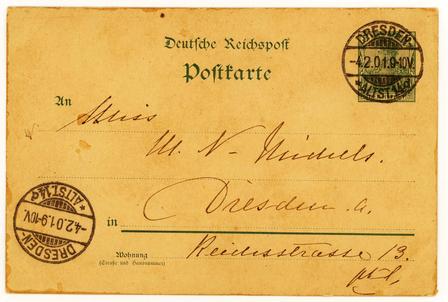 Deutsche Reichspost
Postkarte
DRESDEN-
-4.2.01.9-10V.
*ALTST.14d*
An
Miss
M. N. Michels.
Dresden. a.
in
Reichsstrasse 13.
Wohnung
(Straße und Hausnummer)
DRESDEN-
-4.2.01.9-10V.
*ALTST.14d*